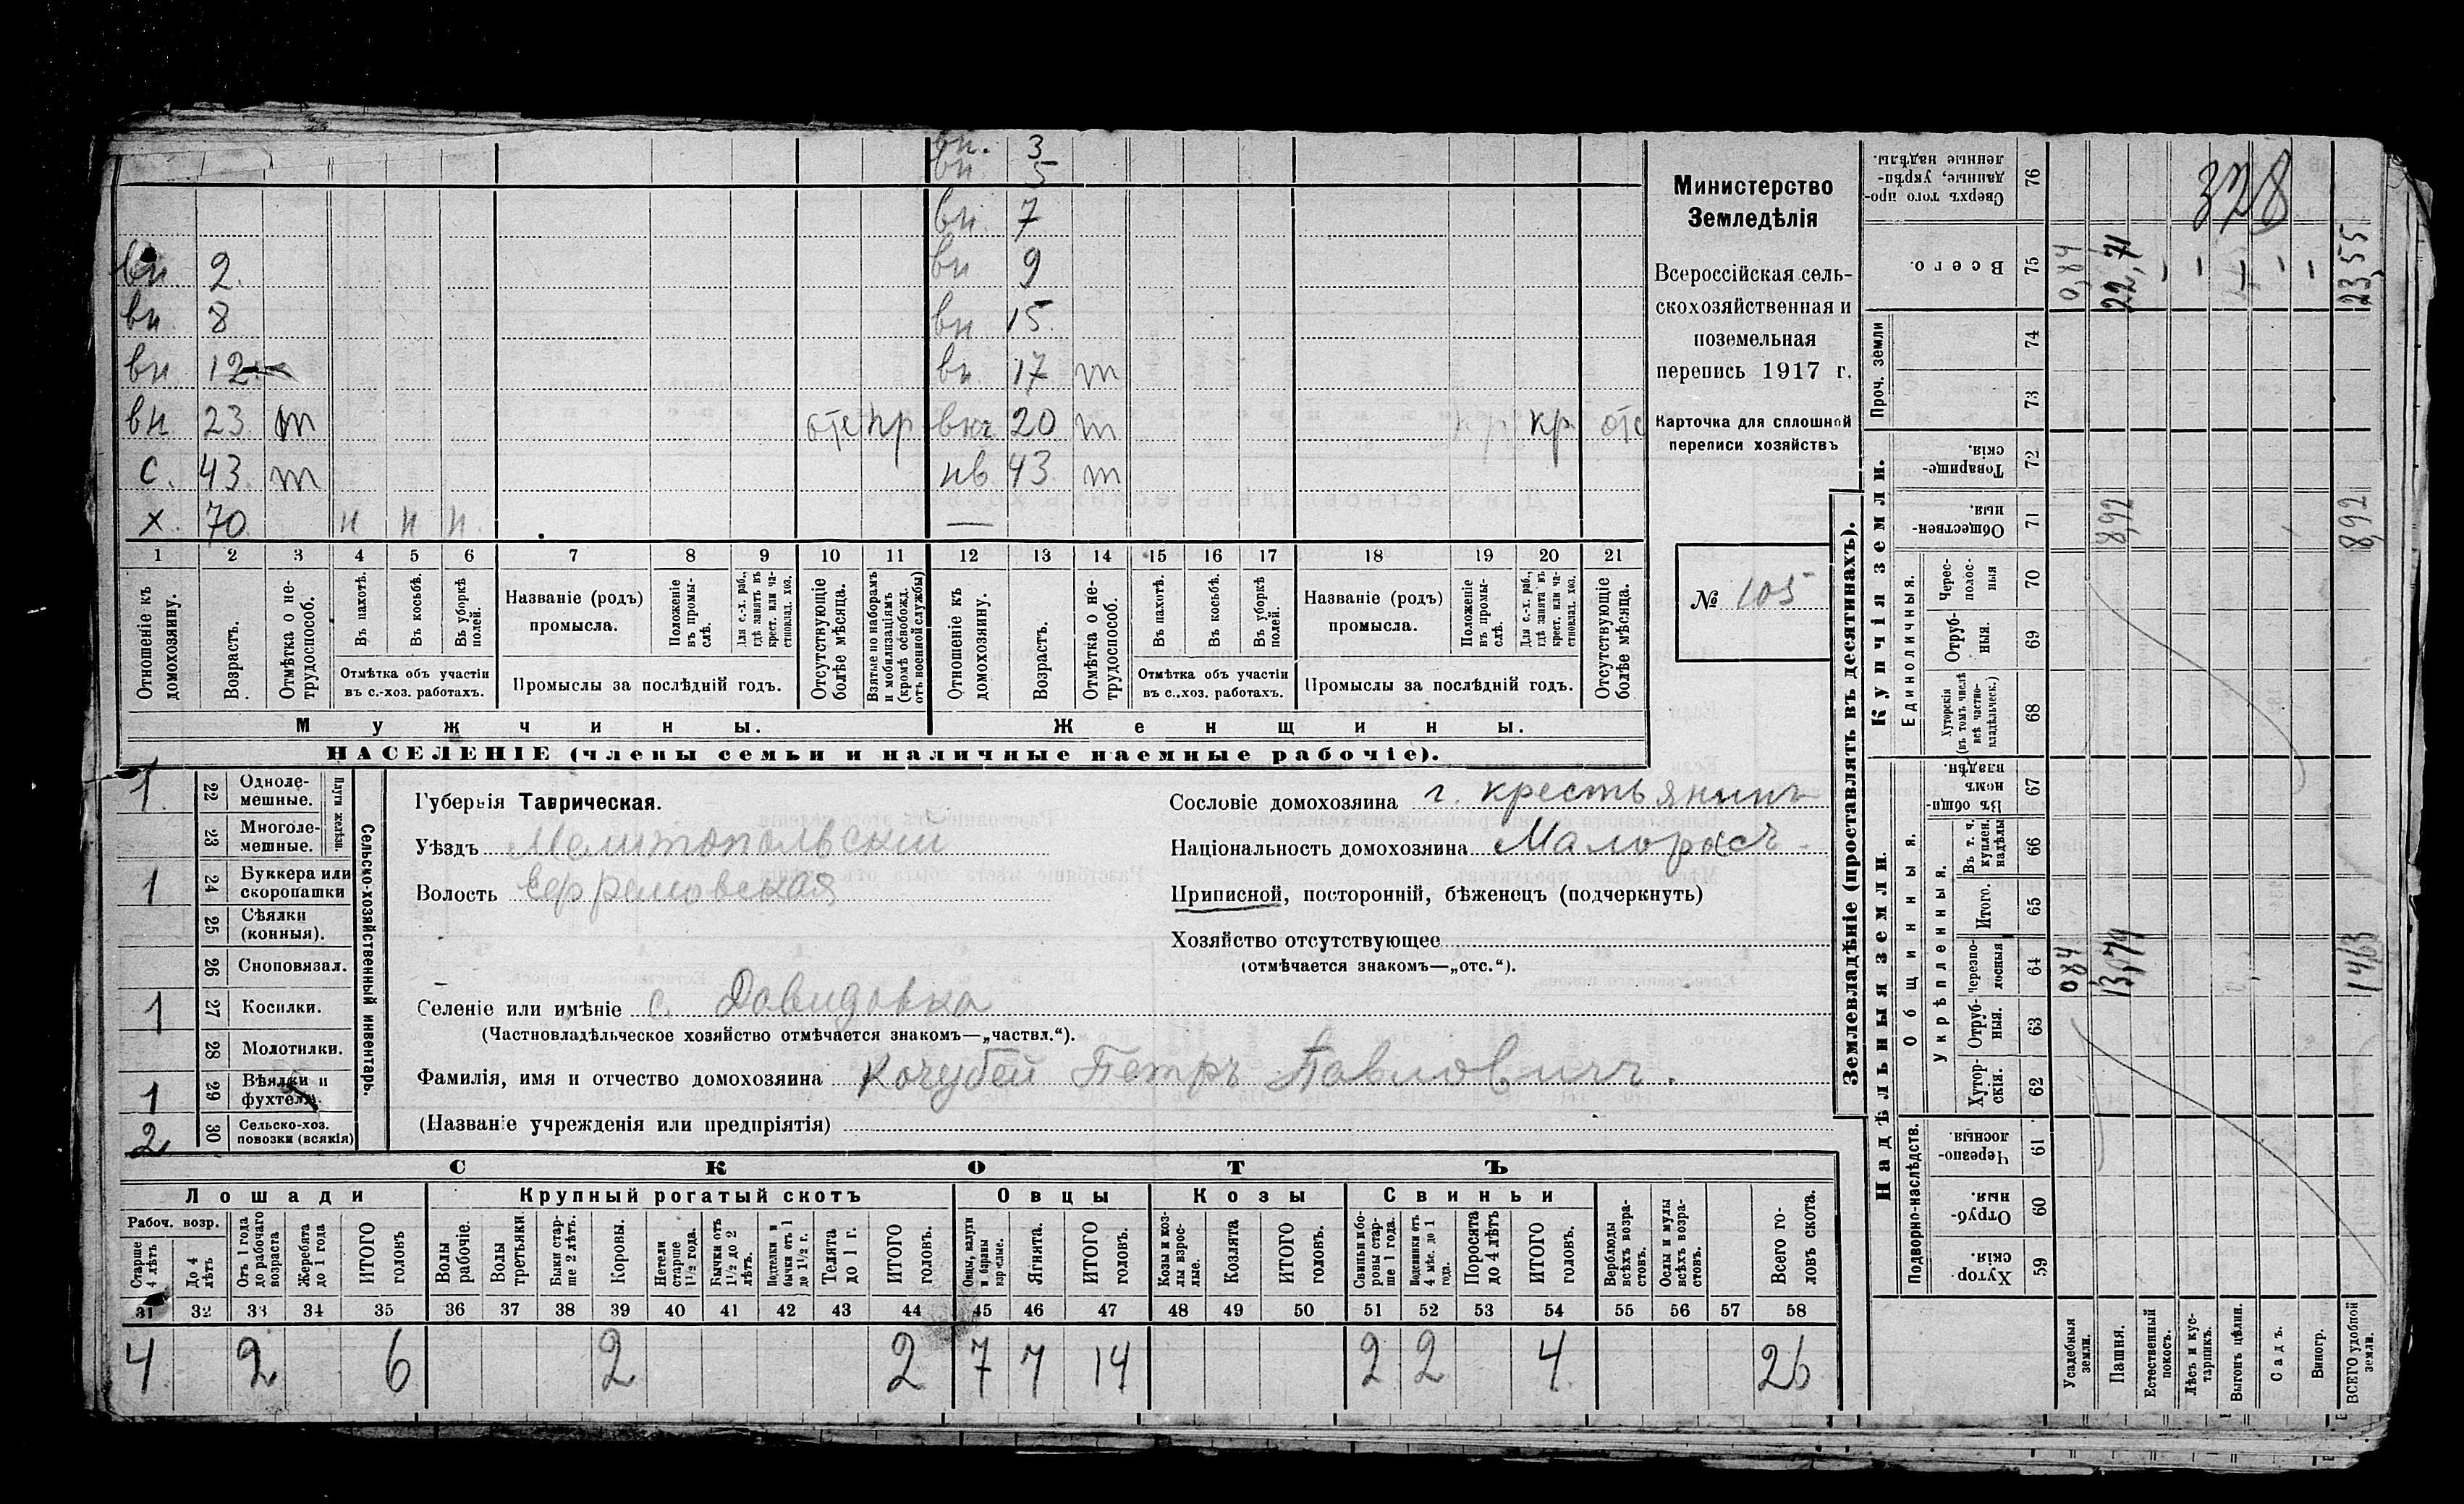 вн. 3
вн 5
вн. 7
вн 2. вн 9
вн 8 вн 15.
вн 12 вн 17 т
вн 23 т отс пр внч 20 т кр отс
С. 43. т нв 43. т
х. 70. н н н. —
1 2 3 4 5 6 7 8 9 10 11 12 13 14 15 16 17 18 19 20 21
Отношеніе къ домохозяину. Возрастъ. Отмѣтка о нетрудоспособ. Въ пахотѣ. Въ косьбѣ. Въ уборкѣ полей. Названіе (родъ) промысла. Положеніе въ промыслѣ. Для с.-х. раб., гдѣ занятъ въ крест. или частновлад. хоз. Отсутствующіе болѣе мѣсяца. Взятые по наборамъ и мобилизаціямъ (кромѣ освобожд. отъ военной службы)
Отношеніе къ домохозяину. Возрастъ. Отмѣтка о нетрудоспособ. Въ пахотѣ. Въ косьбѣ. Въ уборкѣ полей. Названіе (родъ) промысла. Положеніе въ промыслѣ. Для с.-х. раб., гдѣ занята въ крест. или частновлад. хоз. Отсутствующіе болѣе мѣсяца.
Отмѣтка объ участіи въ с.-хоз. работахъ. Промыслы за послѣдній годъ. Отмѣтка объ участіи въ с.-хоз. работахъ. Промыслы за послѣдній годъ.
Мужчины. Женщины.
НАСЕЛЕНІЕ (члены семьи и наличные наемные рабочіе).
Министерство
Земледѣлія
Всероссійская сель-
скохозяйственная и
поземельная
перепись 1917 г.
Карточка для сплошной
переписи хозяйствъ
№ 105
Сельско-хозяйственный инвентарь.
Плуги желѣзн.
1. 22 Одноле-мешные.
23 Многоле-мешные.
1 24 Буккера или скоропашки
25 Сѣялки (конныя).
26 Сноповязал.
1 27 Косилки.
28 Молотилки.
1 29 Вѣялки и фухтеля.
2 30 Сельско-хоз. повозки (всякія)
Губернія Таврическая.
Уѣздъ Мелитопольскій
Волость Ефремовская
Селеніе или имѣніе с. Давидовка
(Частновладѣльческое хозяйство отмѣчается знакомъ—„частвл.“).
Фамилія, имя и отчество домохозяина Кочубей Петръ Павловичъ.
(Названіе учрежденія или предпріятія)
Сословіе домохозяина г. крестьянинъ
Національность домохозяина Малороссъ.
Приписной, посторонній, бѣженецъ (подчеркнуть)
Хозяйство отсутствующее
(отмѣчается знакомъ—„отс.“).
СКОТЪ
Лошади Крупный рогатый скотъ Овцы Козы Свиньи
Рабоч. возр.
Старше 4 лѣтъ До 4 лѣтъ Отъ 1 года до рабочаго возраста Жеребята до 1 года ИТОГО головъ
Волы рабочіе. Волы третьяки. Быки старше 2 лѣтъ. Коровы. Нетели старше 1½ года. Бычки отъ 1½ до 2 лѣтъ. Подтелки и бычки отъ 1 до 1½ г. Телята до 1 г. ИТОГО головъ.
Овцы, валухи и бараны взрослые. Ягнята. ИТОГО головъ.
Козы и козлы взрослые. Козлята ИТОГО головъ.
Свиньи и боровы старше 1 года. Подсвинки отъ 4 мѣс. до 1 года. Поросята до 4 лѣтъ ИТОГО головъ.
Верблюды всѣхъ возрастовъ. Ослы и мулы всѣхъ возрастовъ. Всего головъ скота.
31 32 33 34 35 36 37 38 39 40 41 42 43 44 45 46 47 48 49 50 51 52 53 54 55 56 57 58
4 2 6 2 2 7 7 14 2 2 4 26
Землевладѣніе (проставлять въ десятинахъ).
Надѣльныя земли. Купчія земли. Проч. земли
Подворно-наслѣдств. Общинныя. Укрѣпленныя. Единоличныя.
Хуторскія. 59
Отрубныя. 60
Черезполосныя. 61
Хуторскія. 62
Отрубныя. 63
Черезполосныя 64 0,84 13,79 14,63
Итого. 65
Въ т. ч. куплен. надѣлы 66
Въ общинномъ владѣн. 67
Хуторскія (въ томъ числѣ всѣ частновладѣльческ.) 68
Отрубныя. 69
Чересполосныя 70
Общественныя. 71 8,92 8,92
Товарищескія. 72
73
74
Всего. 75 0,84 22,71 — — — — — 23,55
Сверхъ того проданные, укрѣпленные надѣлы. 76
328
Усадебныя земли. Пашня. Естественный покосъ. Лѣсъ и кустарникъ. Выгонъ цѣлин. Садъ. Виногр. ВСЕГО удобной земли.